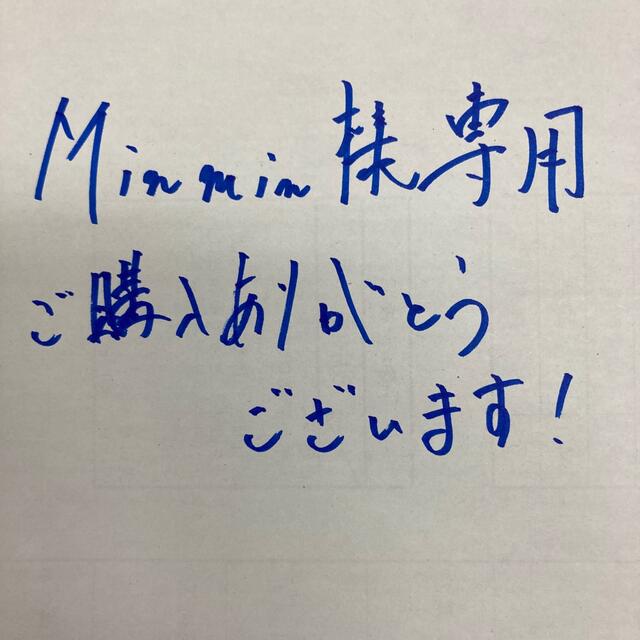 Minmin様専用
ご購入ありがとう
ございます!